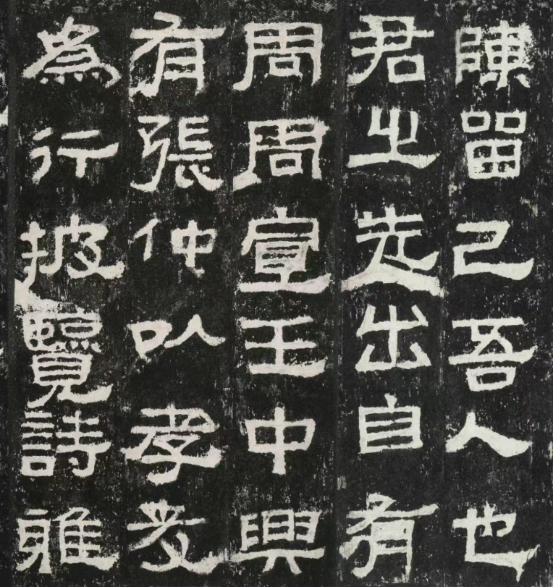 陳留己吾人也
君之先出自有
周周宣王中興
有張仲以孝友
為行披覽詩雅